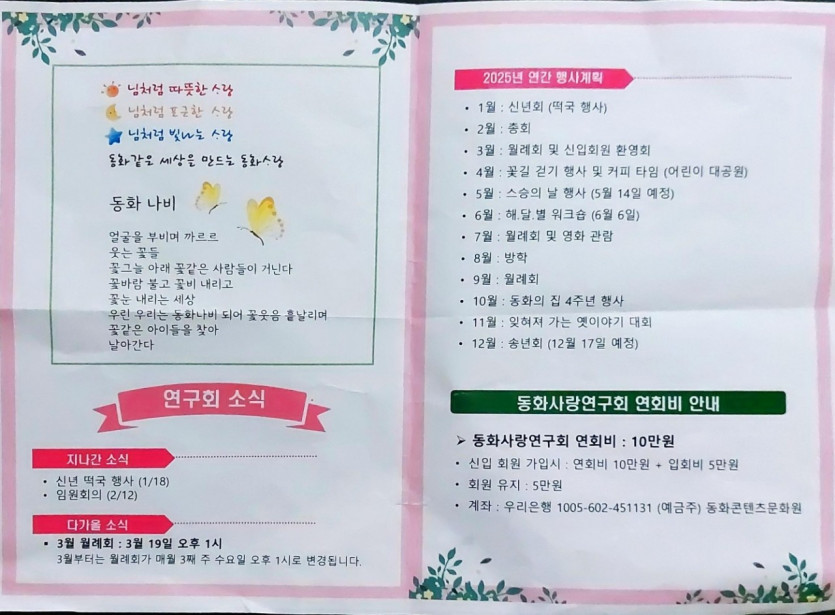 님처럼 따뜻한 사랑
님처럼 포근한 사랑
님처럼 빛나는 사랑
동화같은 세상을 만드는 동화사랑
동화 나비
얼굴을 부비며 까르르
웃는 꽃들
꽃그늘 아래 꽃같은 사람들이 거닌다
꽃바람 불고 꽃비 내리고
꽃눈 내리는 세상
우린 우리는 동화나비 되어 꽃웃음 흩날리며
꽃같은 아이들을 찾아
날아간다
연구회 소식
지나간 소식
• 신년 떡국 행사 (1/18)
• 임원회의 (2/12)
다가올 소식
• 3월 월례회 : 3월 19일 오후 1시
3월부터는 월례회가 매월 3째 주 수요일 오후 1시로 변경됩니다.
2025년 연간 행사계획
• 1월 : 신년회 (떡국 행사)
• 2월 : 총회
• 3월 : 월례회 및 신입회원 환영회
• 4월 : 꽃길 걷기 행사 및 커피 타임 (어린이 대공원)
• 5월 : 스승의 날 행사 (5월 14일 예정)
• 6월 : 해.달.별 워크숍 (6월 6일)
• 7월 : 월례회 및 영화 관람
• 8월 : 방학
• 9월 : 월례회
• 10월 : 동화의 집 4주년 행사
• 11월 : 잊혀져 가는 옛이야기 대회
• 12월 : 송년회 (12월 17일 예정)
동화사랑연구회 연회비 안내
➢ 동화사랑연구회 연회비 : 10만원
• 신입 회원 가입시 : 연회비 10만원 + 입회비 5만원
• 회원 유지 : 5만원
• 계좌 : 우리은행 1005-602-451131 (예금주) 동화콘텐츠문화원